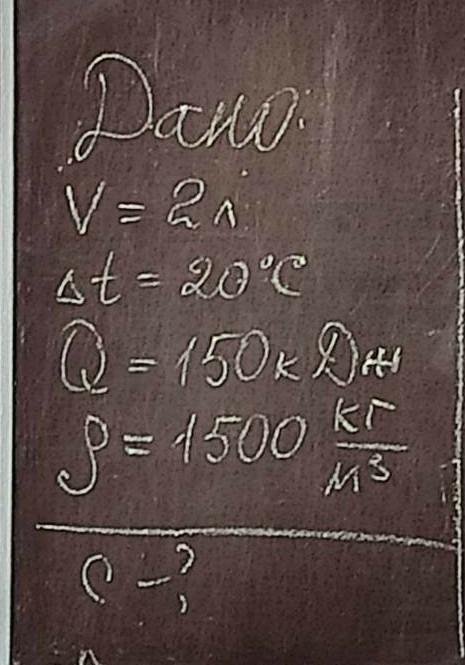 Дано.
V = 2л
Δt = 20°C
Q = 150кДж
ρ = 1500 кг/м³
c – ?